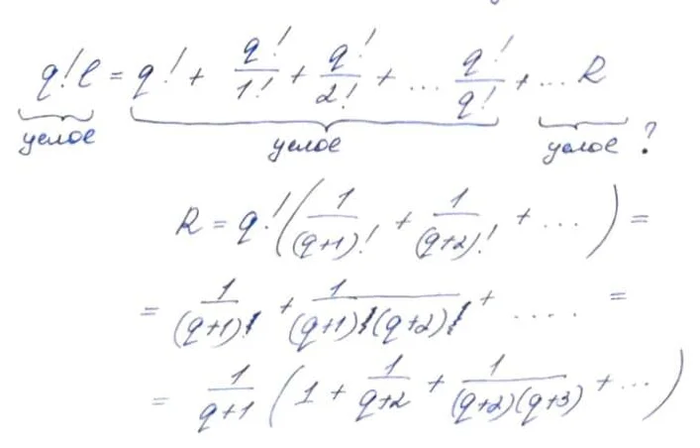 q!e = q! + q!/1! + q!/2! + ... q!/q! + ... R
целое целое целое ?
R = q!(1/(q+1)! + 1/(q+2)! + ...) =
= 1/(q+1) + 1/((q+1)(q+2)) + .... =
= 1/(q+1) (1 + 1/(q+2) + 1/((q+2)(q+3)) + ...)